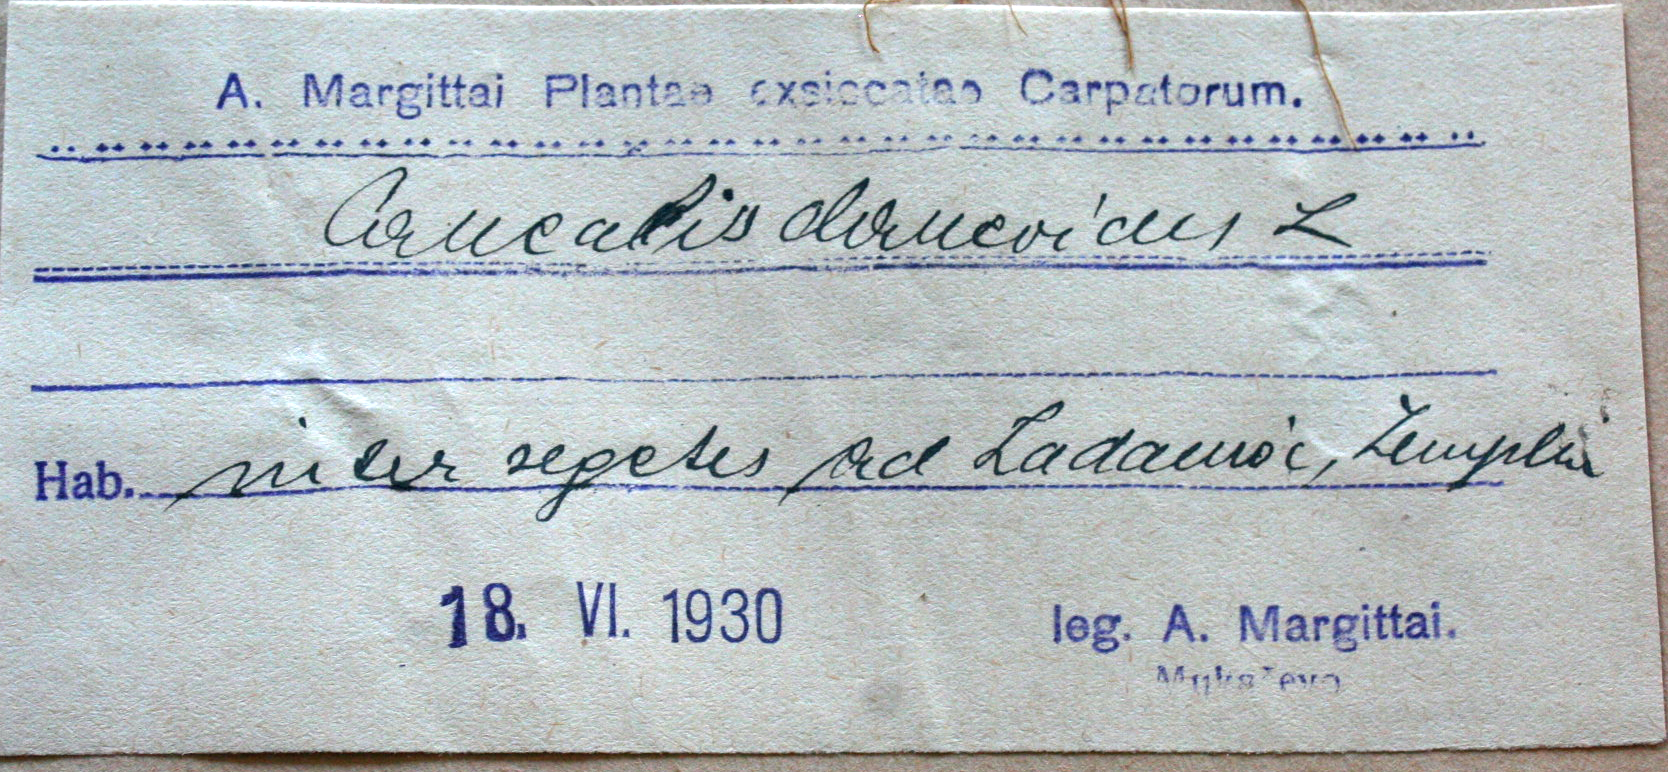 A. Margittai Plantae exsiccatae Carpatorum.
Caucalis daucoides L
Hab. inter segetes ad Ladamóc, Zemplin
18. VI. 1930
leg. A. Margittai.
Mukačevo